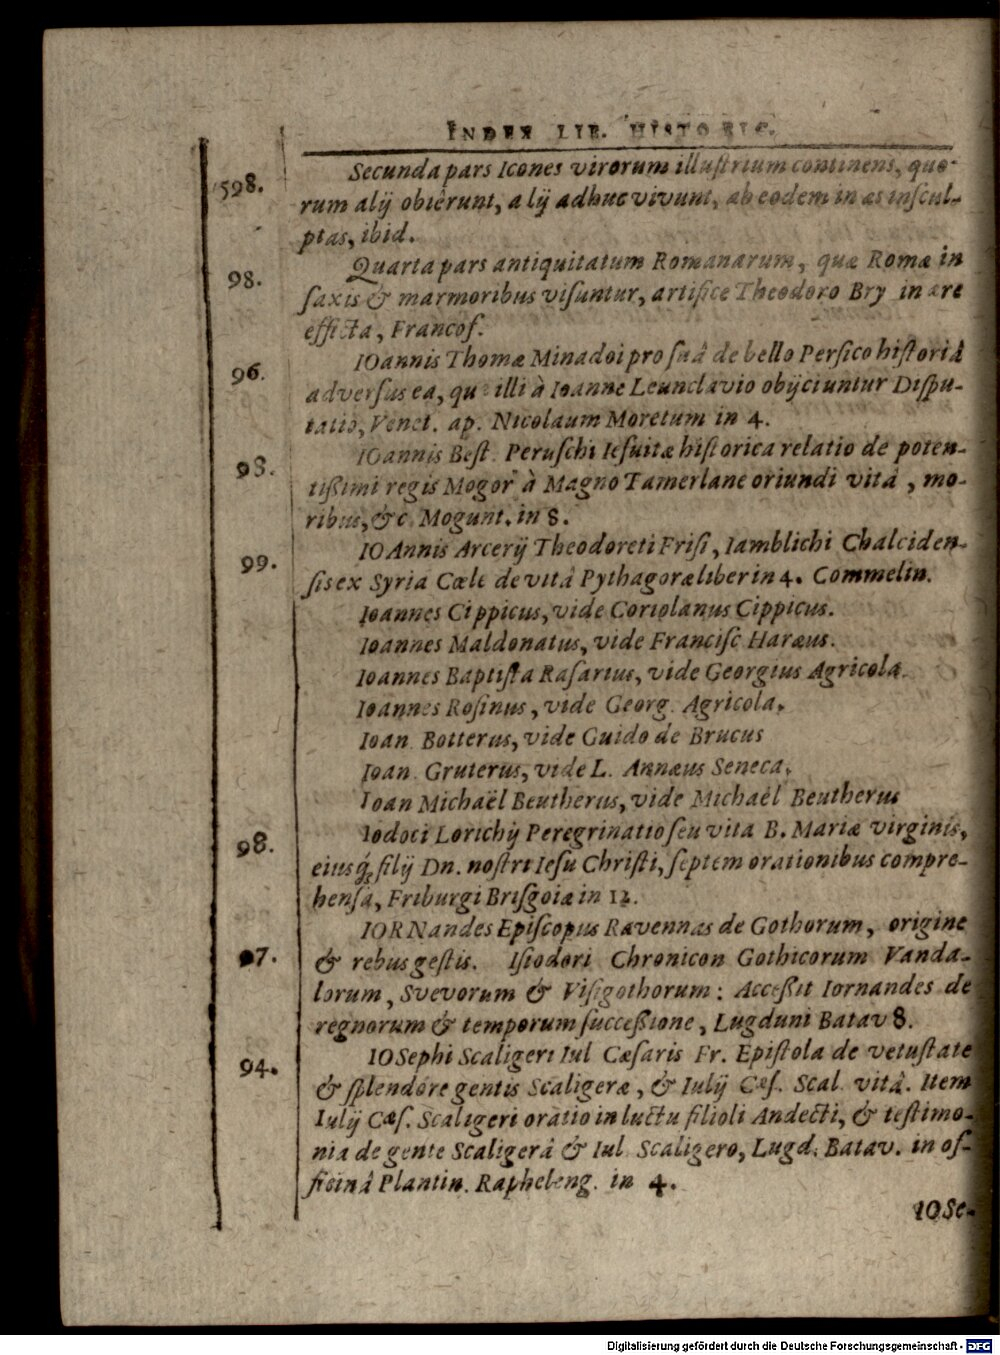 INDEX LIB. HISTORIC.
598. Secunda pars Icones virorum illuſtrium continens, quo-
rum alij obiêrunt, alij adhuc vivunt, ab eodem in æs inſcul-
ptas, ibid.
98. Quarta pars antiquitatum Romanarum, quæ Romæ in
ſaxis & marmoribus viſuntur, artifice Theodoro Bry in ære
efficta, Francof.
96. IOannis Thomæ Minadoi pro ſuâ de bello Perſico hiſtoriâ
adverſus ea, quæ illi à Ioanne Leunclavio obijciuntur Diſpu-
tatio, Venet. ap. Nicolaum Moretum in 4.
98. IOannis Beſt. Peruſchi Ieſuitæ hiſtorica relatio de poten-
tißimi regis Mogor à Magno Tamerlane oriundi vitâ, mo-
ribus, &c. Mogunt. in 8.
99. IOAnnis Arcerij Theodoreti Friſi, Iamblichi Chalciden-
ſis ex Syria Cœle de vitâ Pythagoræ liber in 4. Commelin.
Ioannes Cippicus, vide Coriolanus Cippicus.
Ioannes Maldonatus, vide Franciſc Haræus.
Ioannes Baptiſta Raſarius, vide Georgius Agricola.
Ioannes Roſinus, vide Georg. Agricola.
Ioan. Botterus, vide Guido de Brucus
Ioan. Gruterus, vide L. Annæus Seneca.
Ioan Michaël Beutherus, vide Michaël Beutherus
98. Iodoci Lorichij Peregrinatio ſeu vita B. Mariæ virginis,
eiusq́; filij Dn. noſtri Ieſu Chriſti, ſeptem orationibus compre-
henſa, Friburgi Briſgoiæ in 12.
97. IORNandes Epiſcopus Ravennas de Gothorum, origine
& rebus geſtis. Iſiodori Chronicon Gothicorum Vanda-
lorum, Svevorum & Viſigothorum: Acceßit Iornandes de
regnorum & temporum ſucceßione, Lugduni Batav 8.
94. IOSephi Scaligeri Iul Cæſaris Fr. Epiſtola de vetuſtate
& ſplendore gentis Scaligeræ, & Iulij Cæſ. Scal. vitâ. Item
Iulij Cæſ. Scaligeri oratio in luctu filioli Andecti, & teſtimo-
nia de gente Scaligerâ & Iul. Scaligero, Lugd. Batav. in of-
ficinâ Plantin. Rapheleng. in 4.
IOSe-
Digitalisierung gefördert durch die Deutsche Forschungsgemeinschaft - DFG